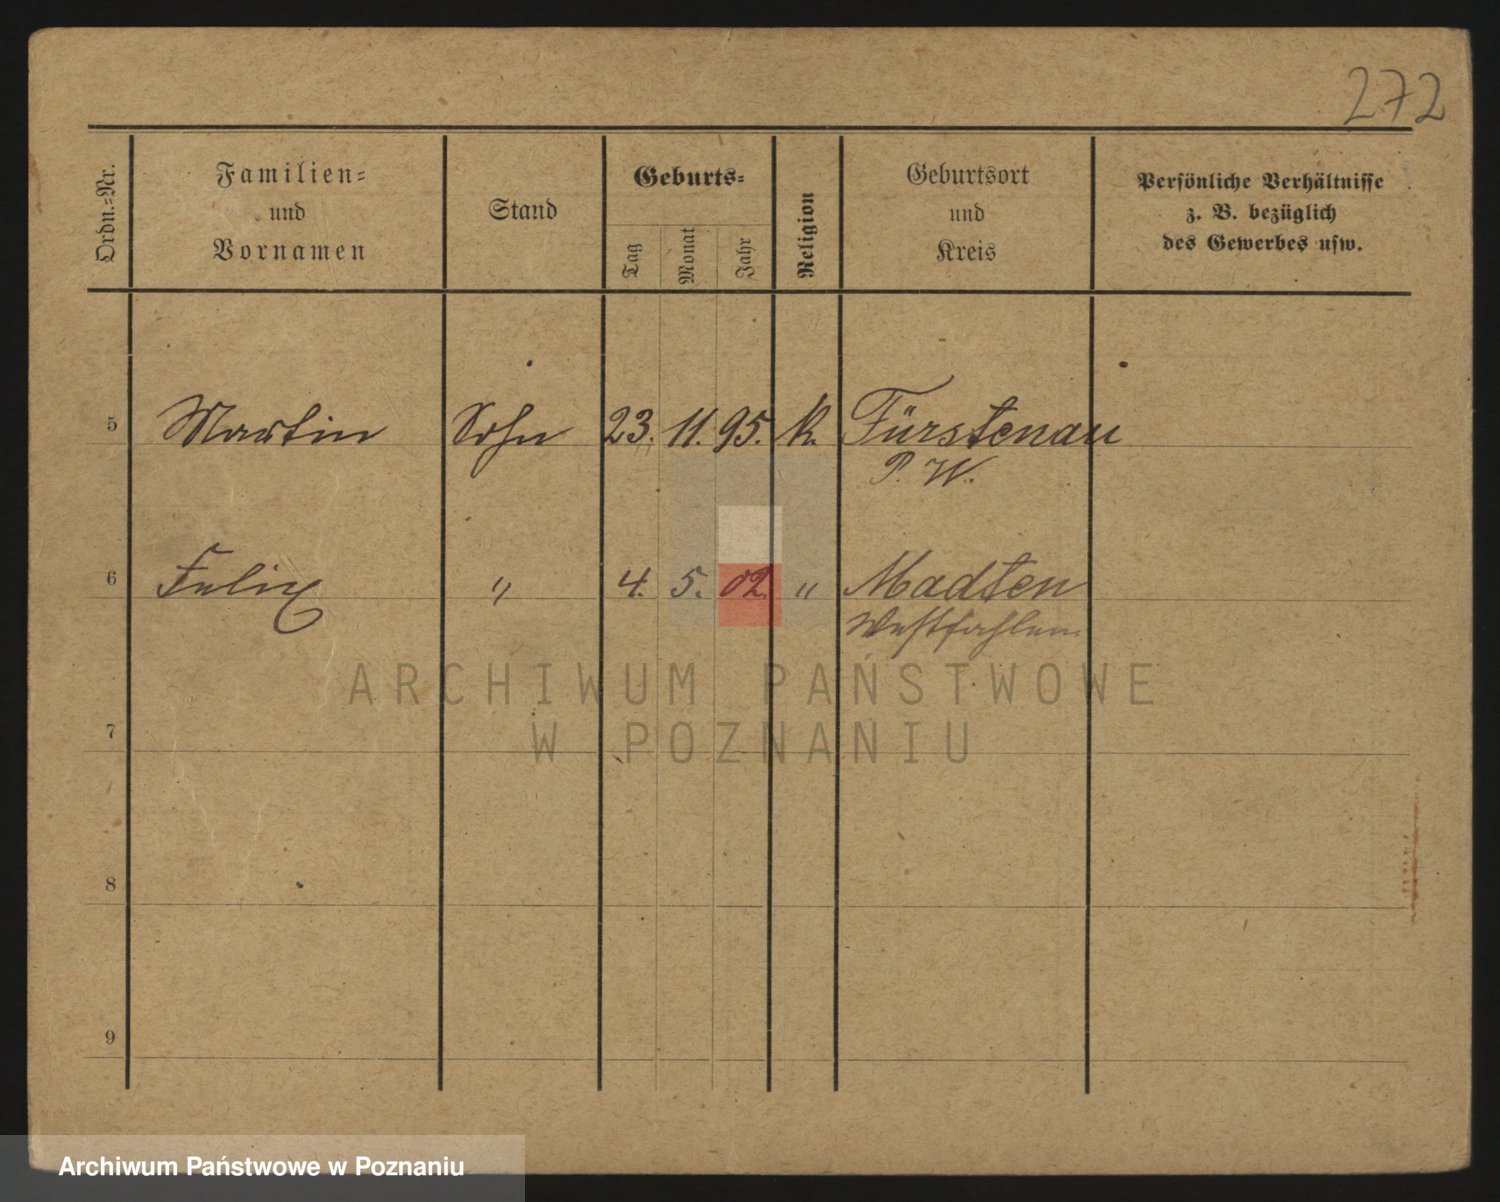 272
Ordn.-Nr.
Familien-
und
Vornamen
Stand
Geburts-
Tag
Monat
Jahr
Religion
Geburtsort
und
Kreis
Persönliche Verhältnisse
z. B. bezüglich
des Gewerbes usw.
5 Martin Sohn 23. 11. 95. k. Fürstenau
P. W.
6 Felix " 4. 5. 02. " Madten
Westfahlen
ARCHIWUM PAŃSTWOWE
W POZNANIU
7
8
9
Archiwum Państwowe w Poznaniu